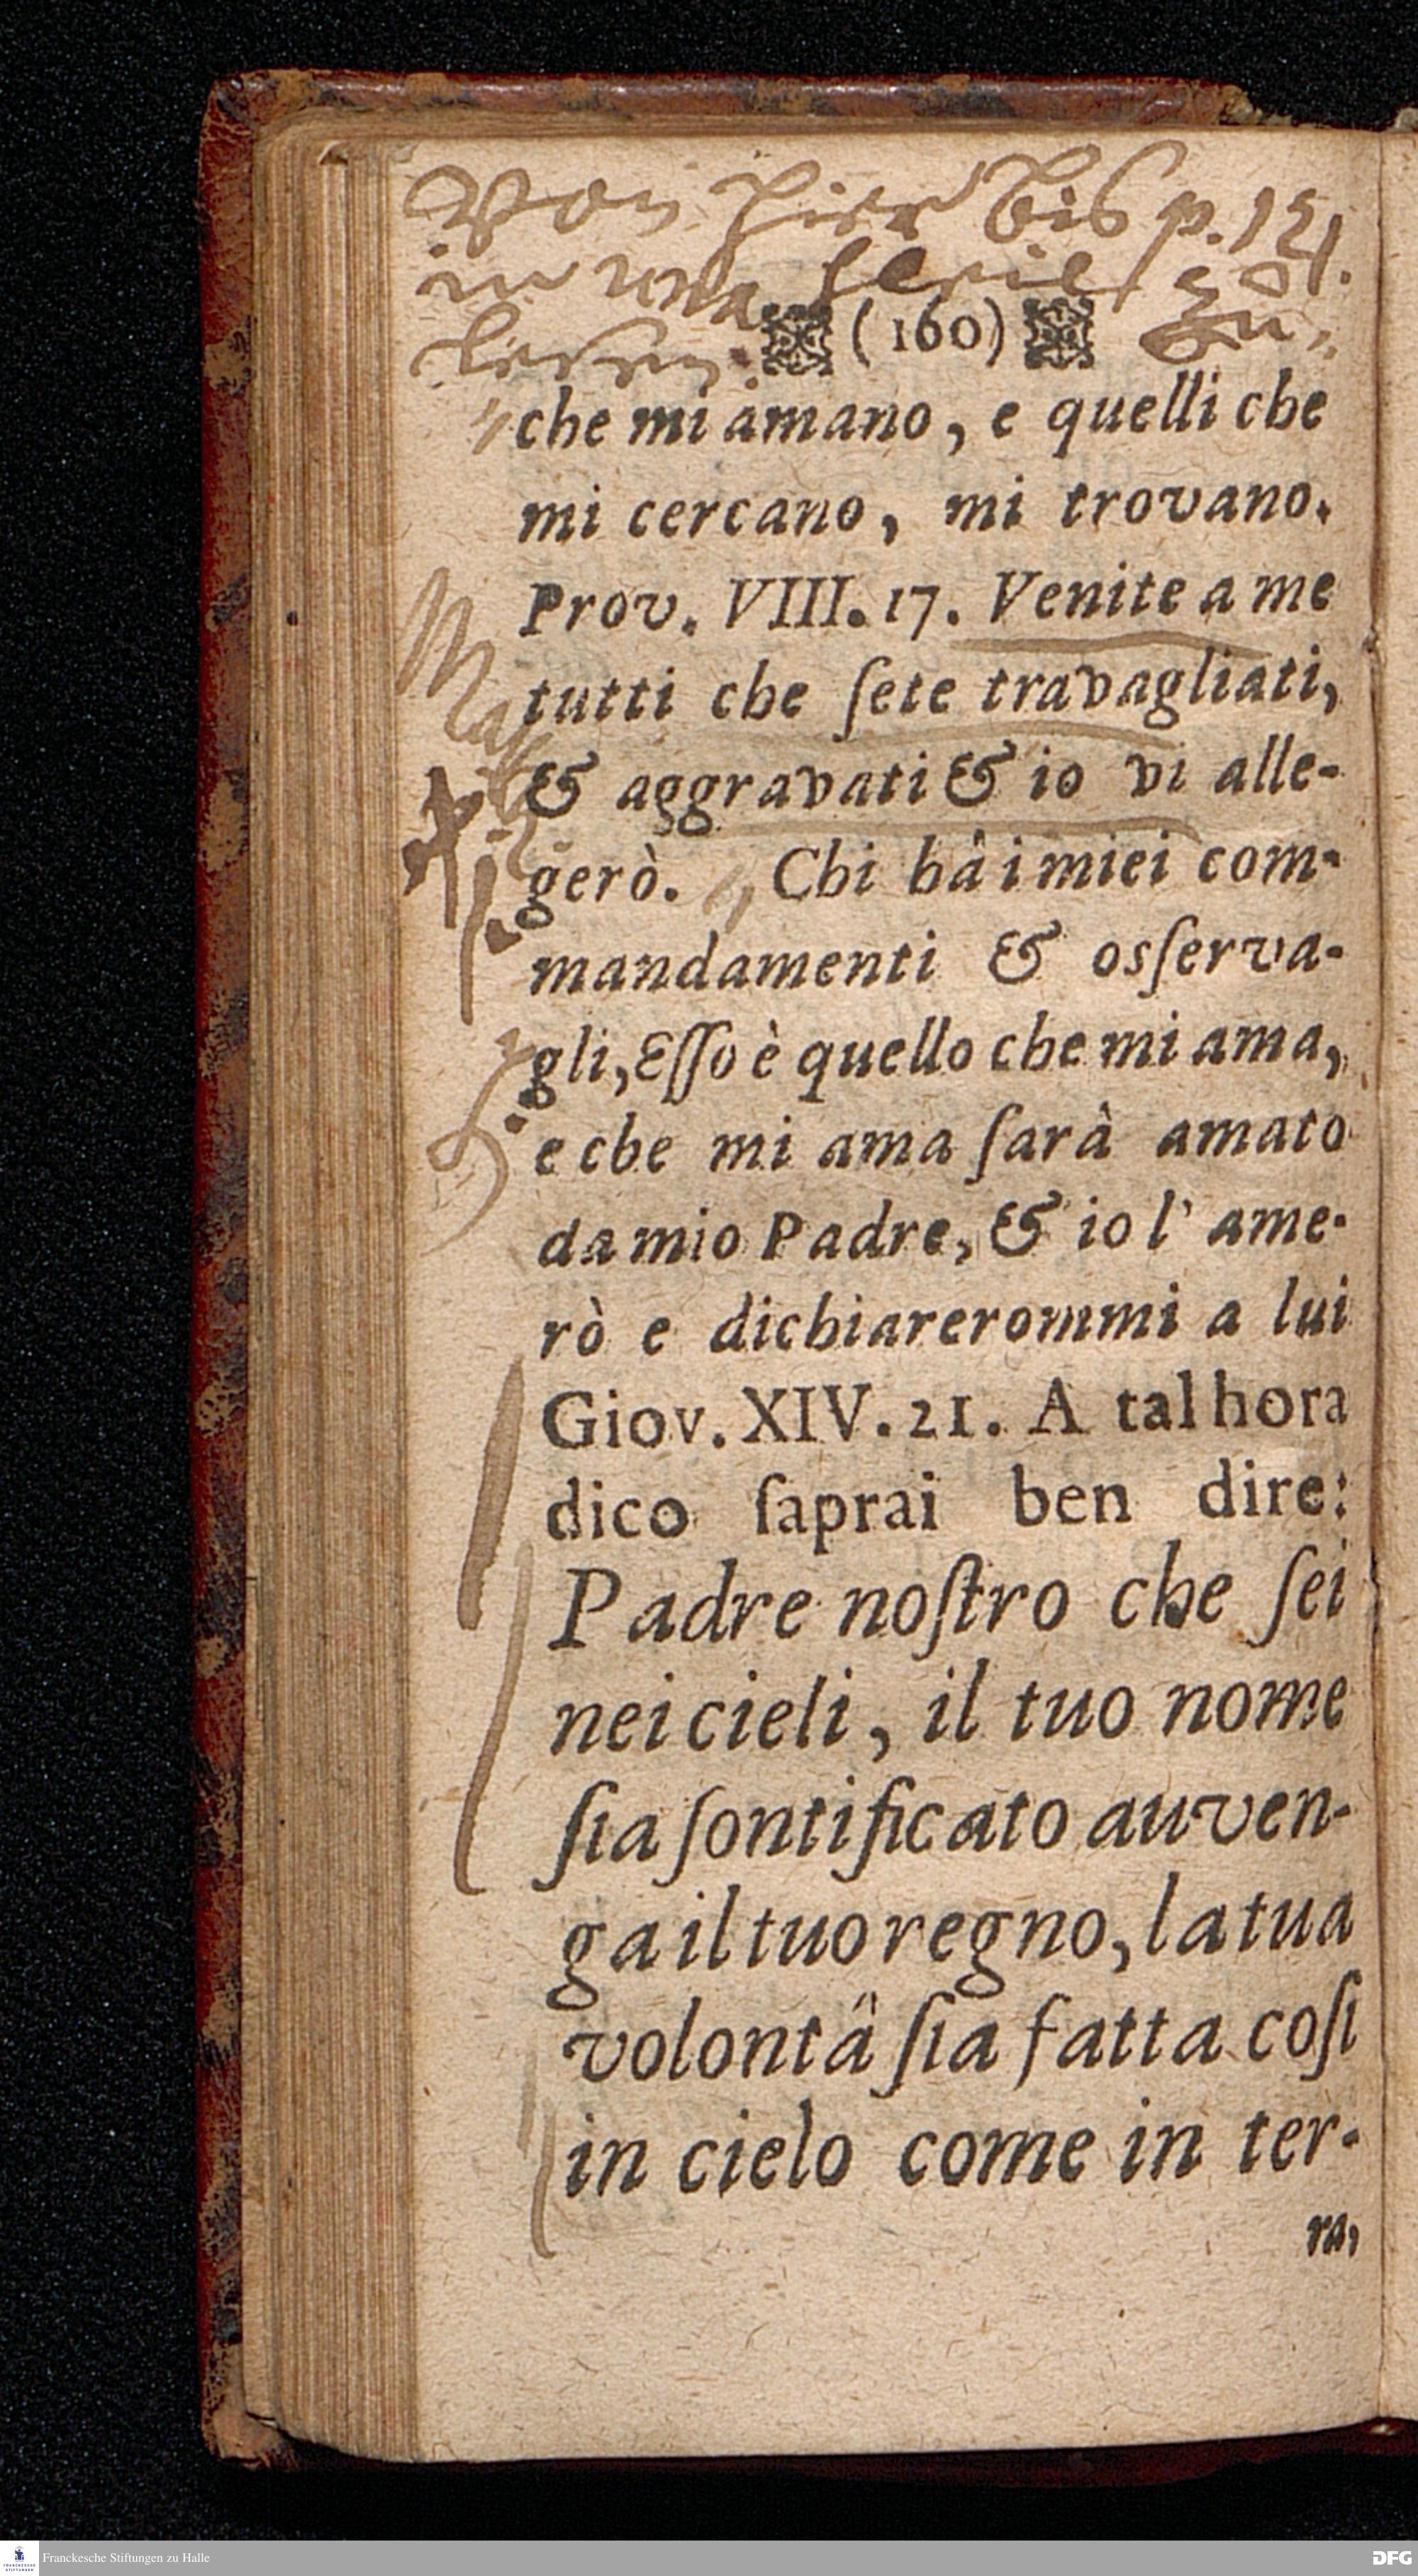 Von hier bis p. 121.
in
lesen. (160) zu
che mi amano, e quelli che
mi cercano, mi trovano.
Prov. VIII. 17. Venite a me
tutti che ſete travagliati,
& aggravati & io vi alle-
gerò. Chi hà i miei com-
mandamenti & osſerva-
gli, Eſſo è quello che mi ama,
e che mi ama ſarà amato
da mio Padre, & io l' ame-
rò e dichiarerommi a lui
Giov. XIV. 21. A tal hora
dico ſaprai ben dire:
Padre noſtro che ſei
nei cieli, il tuo nome
ſia ſontificato auven-
ga il tuo regno, la tua
volontà ſia fatta coſi
in cielo come in ter-
ra,
Franckesche Stiftungen zu Halle
DFG